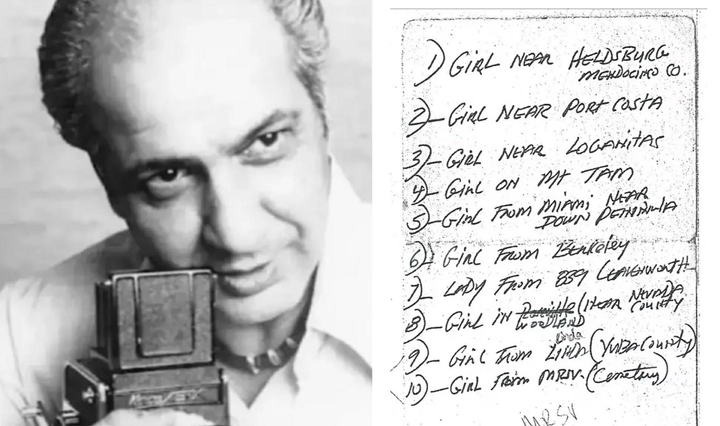 1) GIRL NEAR HELDSBURG
MENDOCINO CO.
2)- GIRL NEAR PORT COSTA
3)- GIRL NEAR LOGANITAS
4)- GIRL ON MT TAM
5)- GIRL FROM MIAMI NEAR
DOWN PENINULA
6)- GIRL FROM BERKELEY
7)- LADY FROM 839 LEAVENWORTH
8)- GIRL IN (NEAR NEVADA
COUNTY
WOODLAND
9)- GIRL FROM LINDA (YUBA COUNTY)
10)- GIRL FROM MRSV. (Cemetery)
MRSV